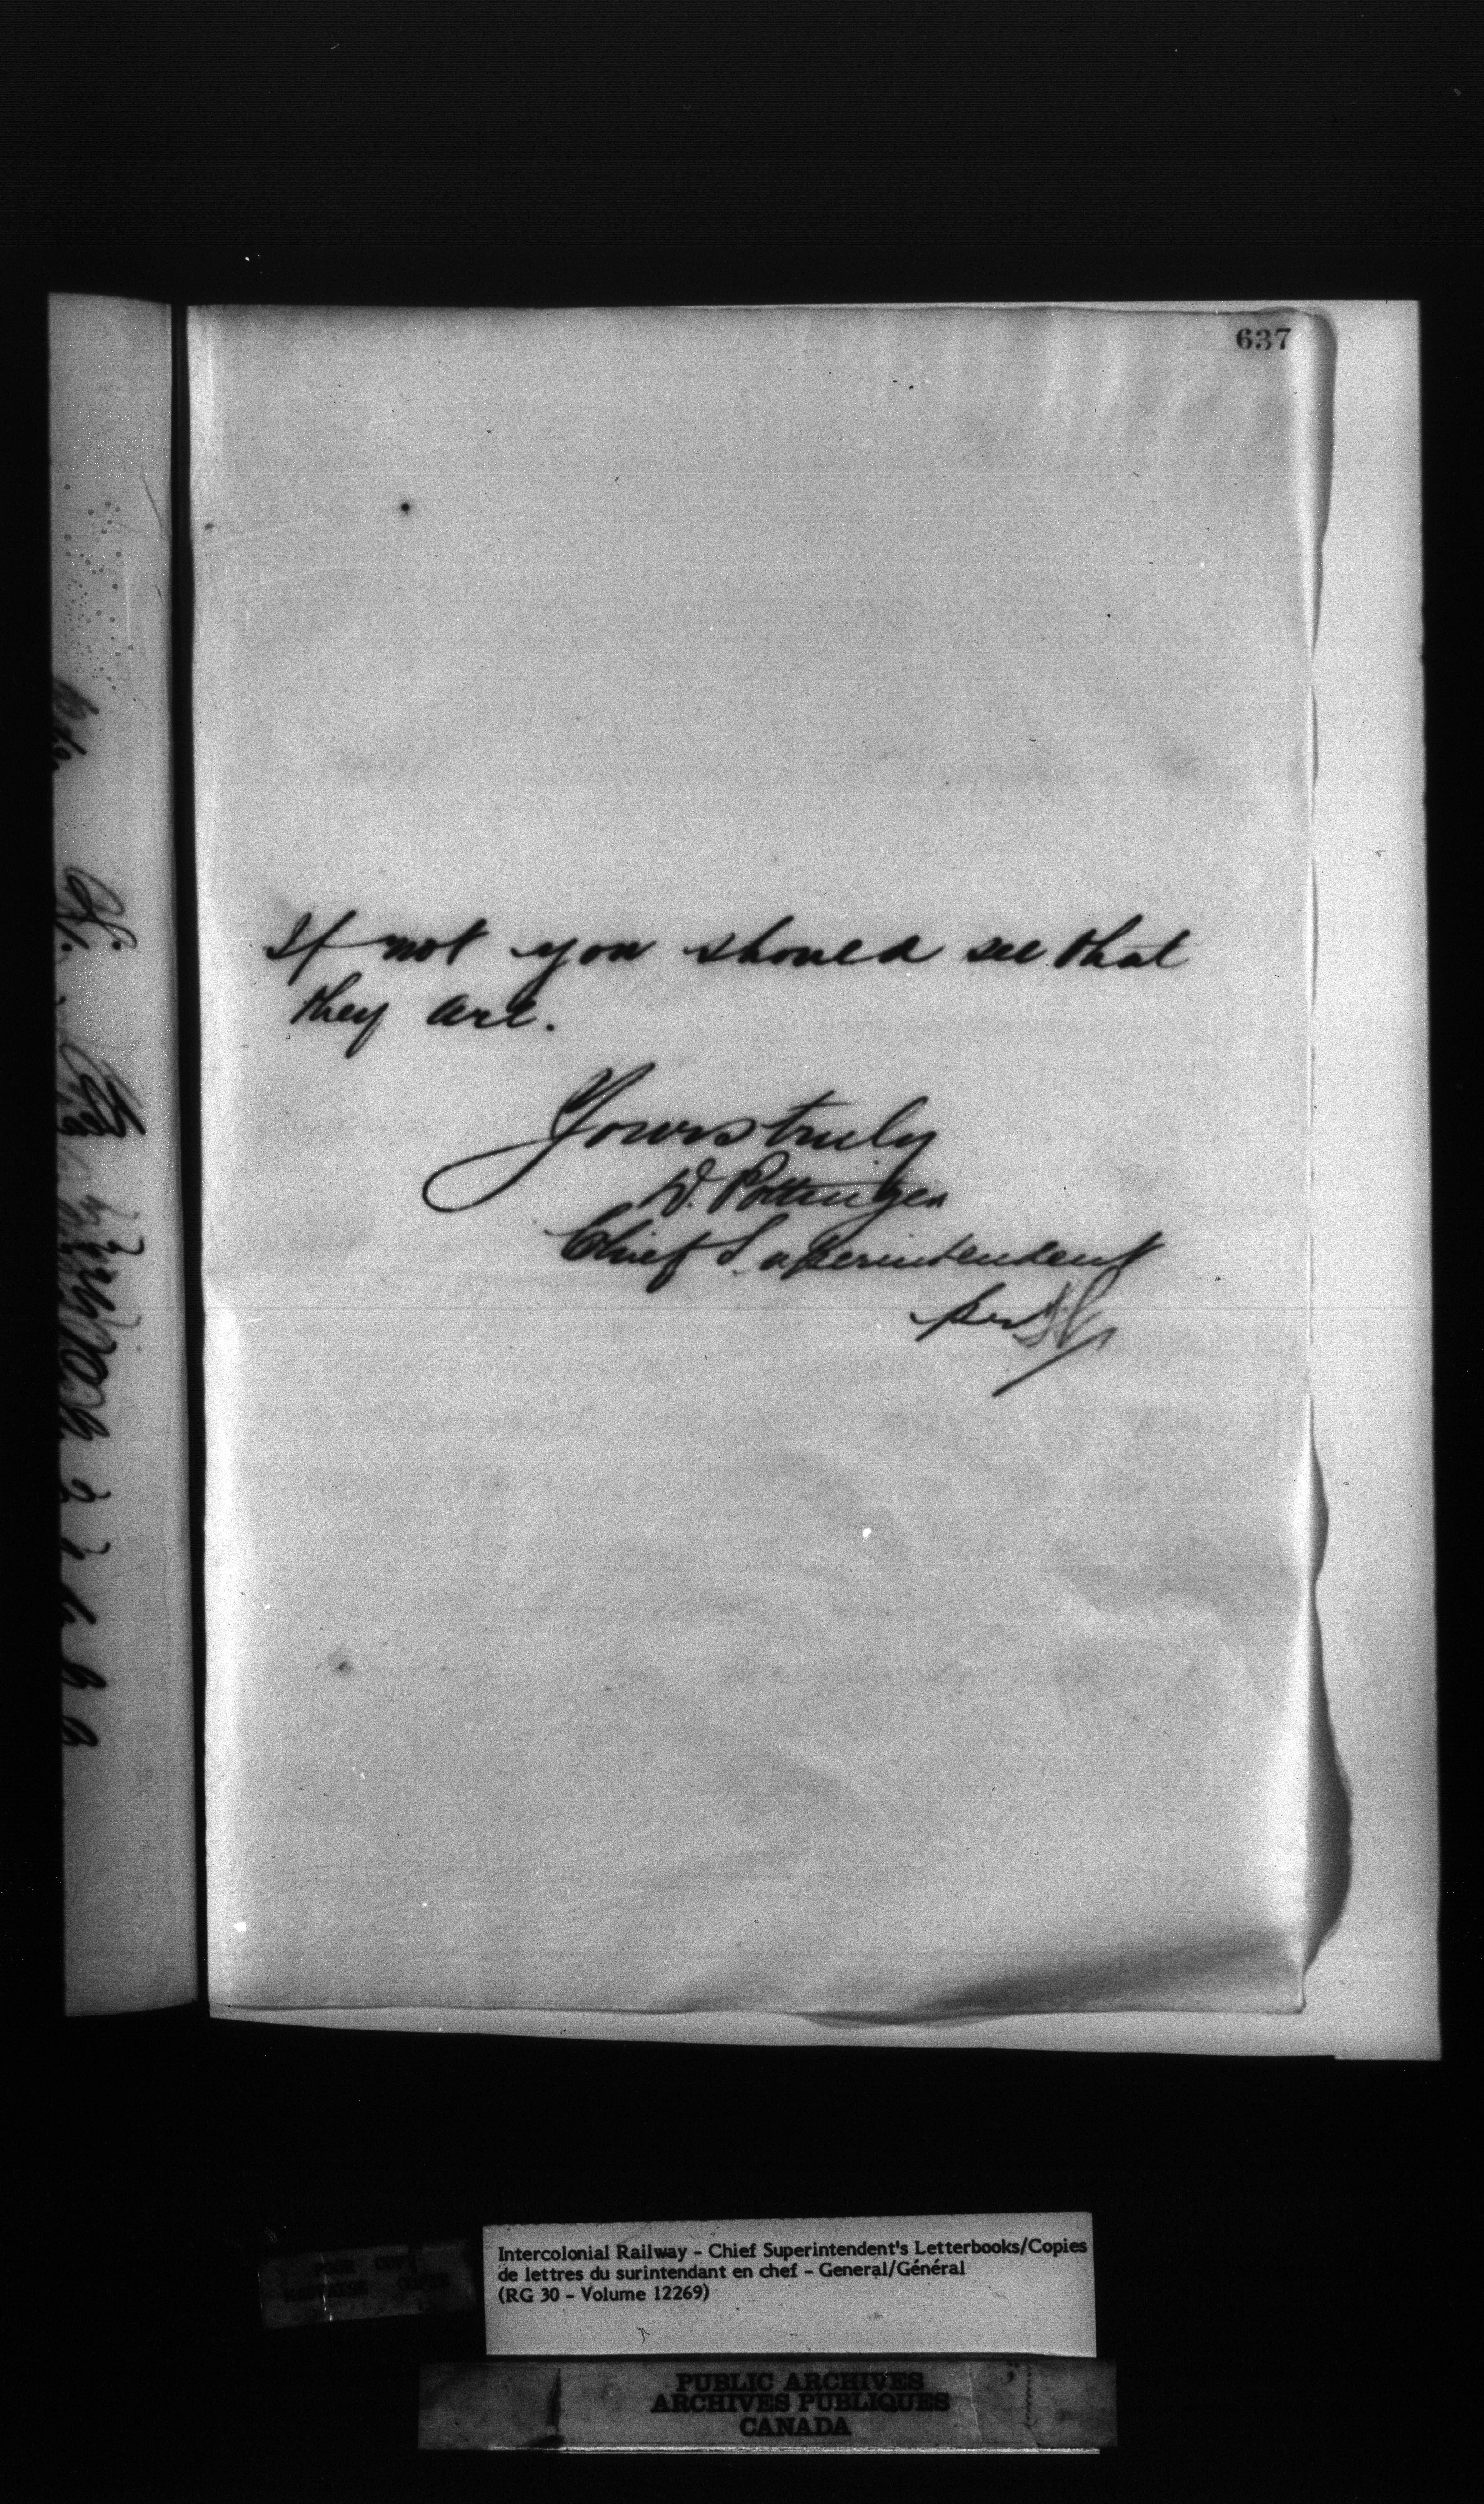 637
If not you should see that
they are.
Yours truly
D. Pottinger
Chief Superintendent
per
POOR COPY
MAUVAISE COPIE
Intercolonial Railway - Chief Superintendent's Letterbooks/Copies
de lettres du surintendant en chef - General/Général
(RG 30 - Volume 12269)
PUBLIC ARCHIVES
ARCHIVES PUBLIQUES
CANADA